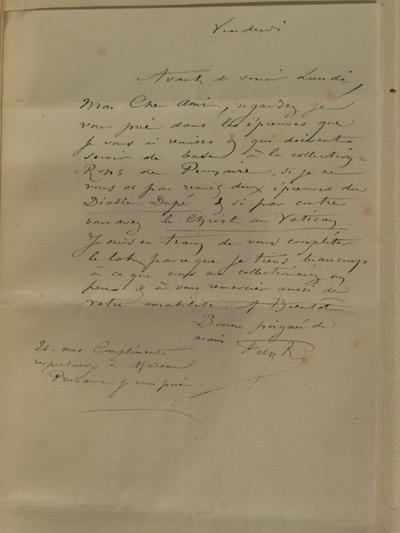 Vendredi
Avant de venir Lundi,
Mon Cher Ami, regardez je
vous prie dans les épreuves que
je vous ai remises & qui doivent
servir de base à la collection
Rops de Prunaire, si je ne
vous ai pas remis deux épreuves du
Diable Dupé & si par contre
vous avez le Christ au Vatican
Je suis en train de vous compléter
le lot parce que je tiens beaucoup
à ce que vous me collectionniez un
peu & à vous remercier aussi de
votre amabilité. A Bientot
Bonne poignée de
main
Et mes Compliments
respectueux à Madame
Prunaire je vous prie.